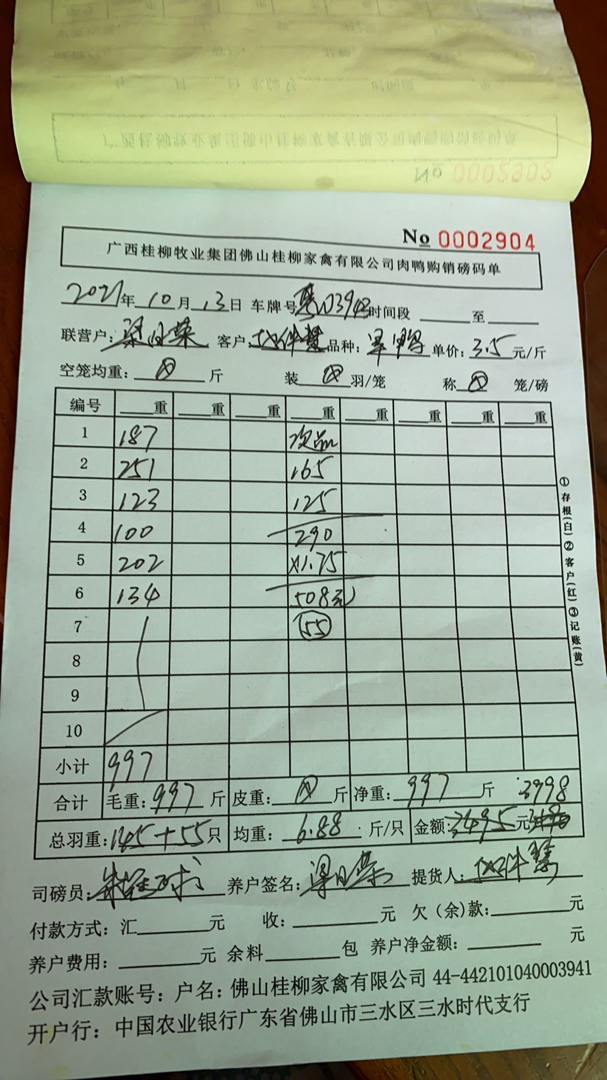 No 0002904
广西桂柳牧业集团佛山桂柳家禽有限公司肉鸭购销磅码单
2021年10月13日 车牌号 时间段 至
联营户: 梁日荣 客户: 品种: 单价: 3.5元/斤
空笼均重: 斤 装 羽/笼 称 笼/磅
编号 重 重 重 重 重 重 重 重
1 187 次品
2 251 165
3 123 125
4 100 290
5 202 X1.75
6 134 508元
7 55
8
9
10
小计 997
合计 毛重: 997斤 皮重: 斤 净重: 997斤 3998
总羽重: 145+55只 均重: 6.88斤/只 金额: 3495元
司磅员: 养户签名: 梁日荣 提货人:
付款方式: 汇 元 收: 元 欠(余)款: 元
养户费用: 元 余料 包 养户净金额: 元
公司汇款账号: 户名: 佛山桂柳家禽有限公司 44-442101040003941
开户行: 中国农业银行广东省佛山市三水区三水时代支行
①存根(白)②客户(红)③记账(黄)